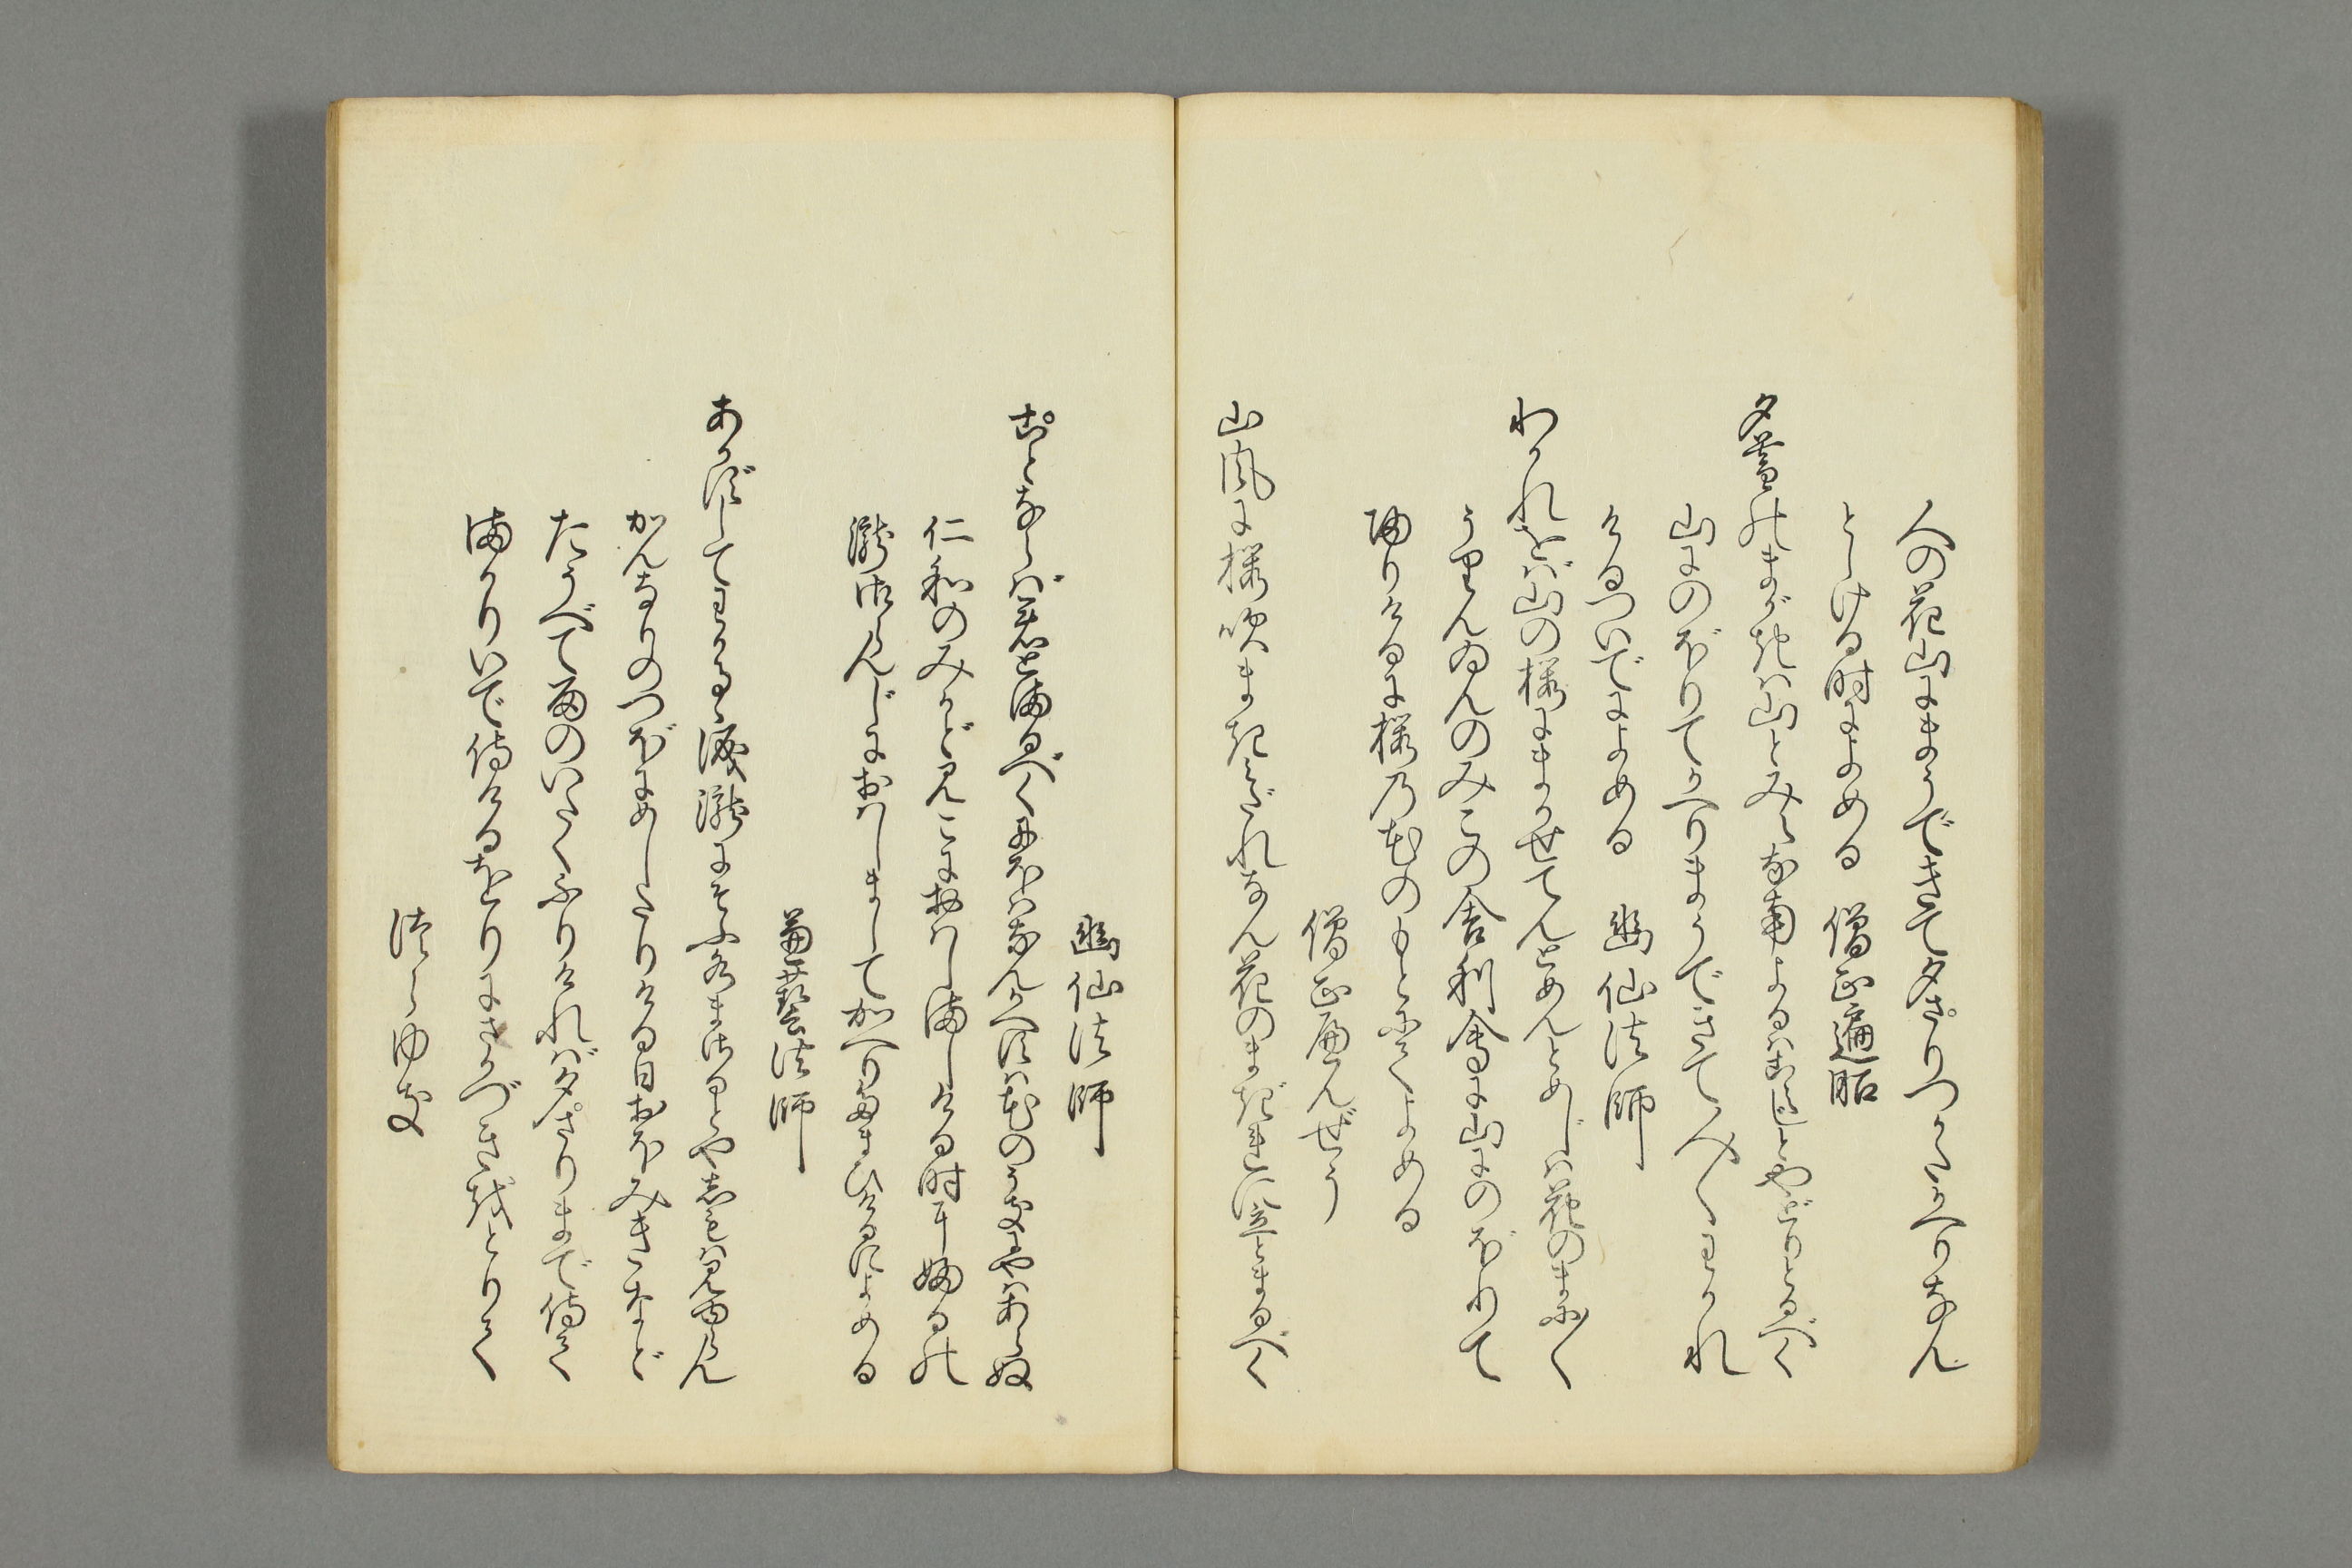 人の花山にまうできて夕さりつかたかへりなん
としける時によめる　僧正遍昭
夕暮のまがきは山とみえななんよるはこえじとやどりとるべく
山にのぼりてかへりまうできて人〳〵わかれ
けるついでによめる　幽仙法師
わかれをば山の桜にまかせてんとめんとめじは花のまに〳〵
うりんゐんのみこの舎利会に山にのぼりて
帰りけるに桜の花のもとにてよめる
僧正へんぜう
山風に桜吹まきみだれなん花のまぎれに立とまるべく
幽仙法師
ことならば君とまるべくにほはなんかへすは花のうきにやはあらぬ
仁和のみかどみこにおはしましける時に ふるの
瀧御らんじにおはしましてかへりたまひけるによめる
兼藝法師
あかずしてわかるゝ涙瀧にそふ水まさるとやしもは見るらん
かんなりのつぼにめしたりける日おほみきなど
たうべて雨のいたくふりければ夕さりまで侍て
まかりいで侍けるをりにさかづきをとりて
つらゆき